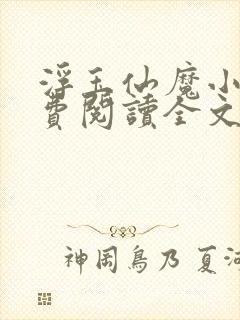 浮玉仙魔小
費閱讀全文
神岡鳥乃 夏河